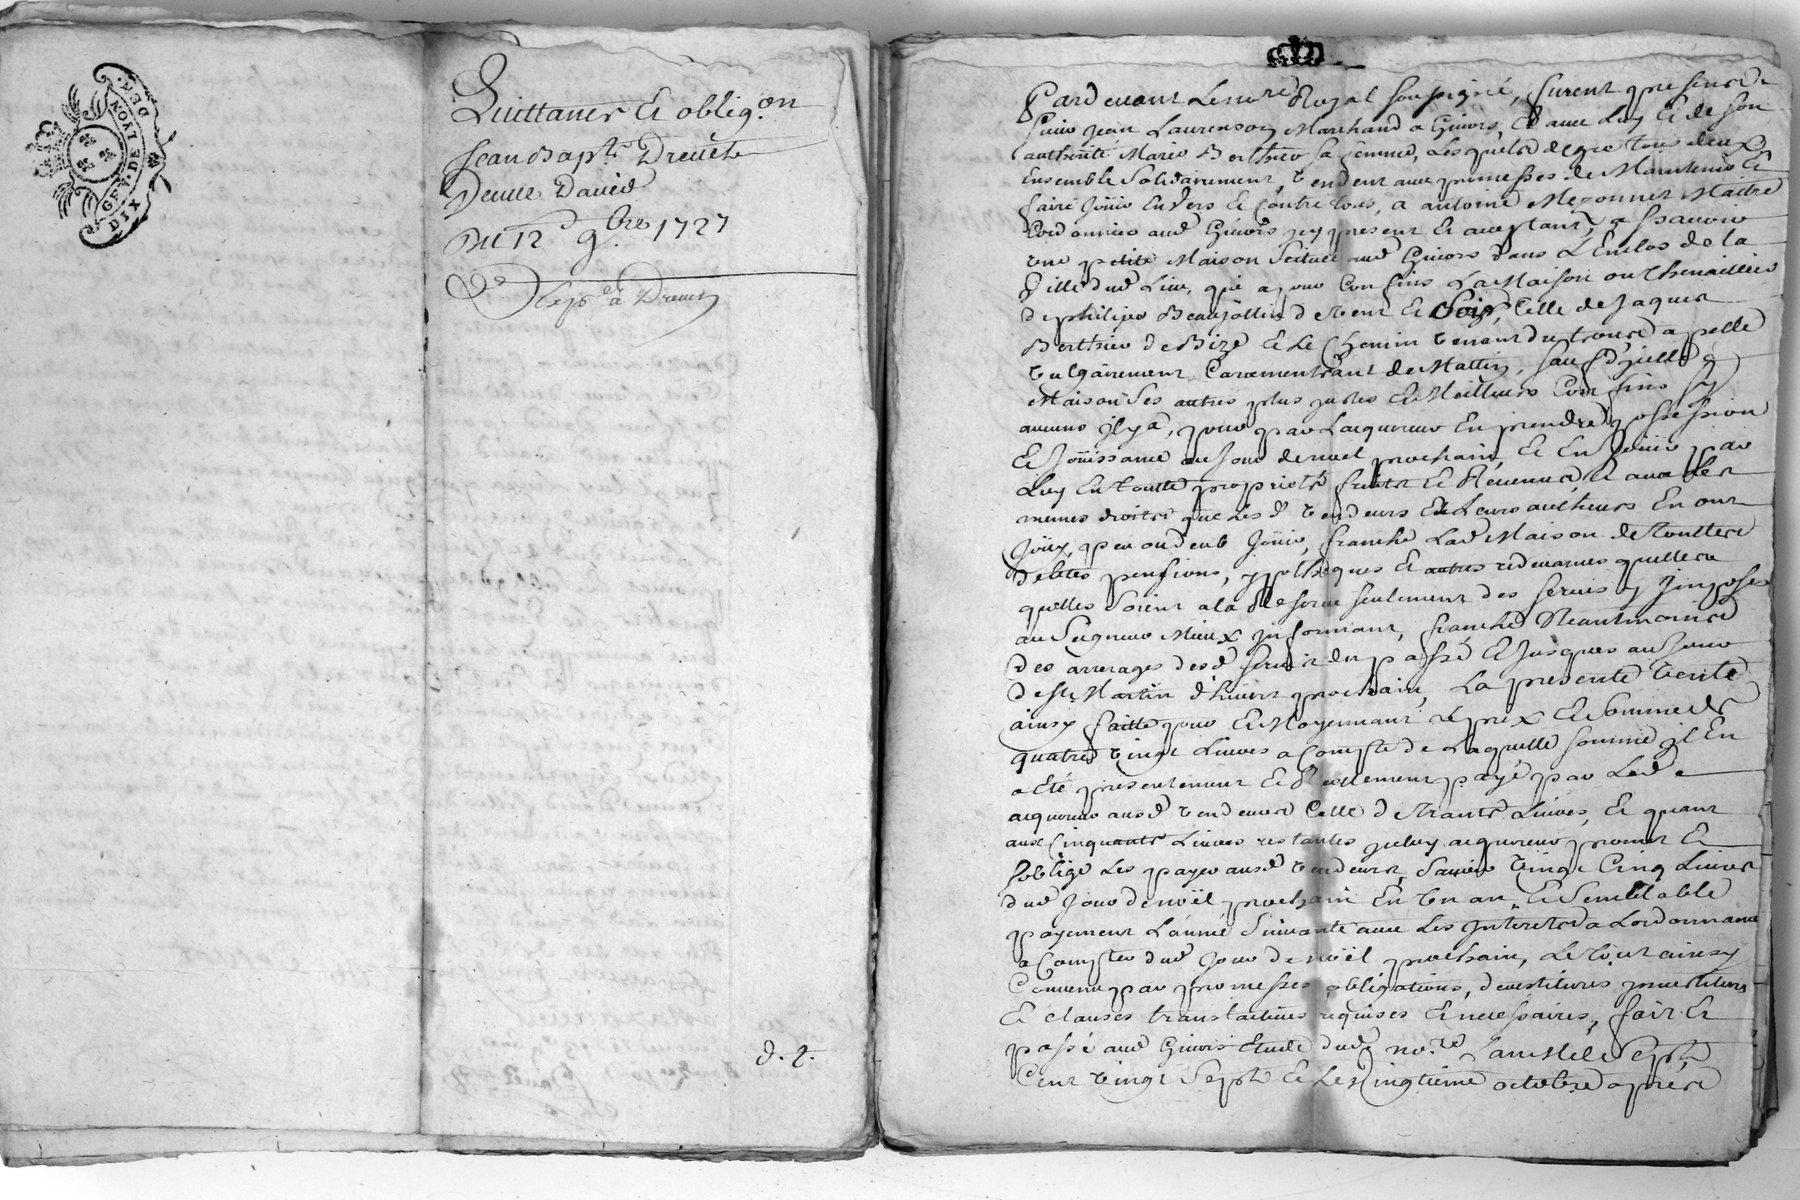 GEN. DE LYON
DIX DEN.
Quittance et oblig.on
Jean Bap.te Drevet
Deuue Dauid
Du 12 9.bre 1727
d. t.
Pardeuant Le no.re Royal soussigné, furent presents
sieur Jean Laurenson Marchand a Giuors, et auec Luy et de son
authorité Marie Berthier sa femme, Lesquels de gré tous deux
Ensemble solidairement, vendent auec promesses de Maintenir Et
faire joüir Enuers Et Contre tous, a antoine Mezonnet Maitre
Cordonnier aud Giuors icy present Et acceptant, a sçauoir
vne petite Maison Scituée aud Giuors dans L'Enclos de la
Ville dud Lieu, qui a pour Confins La Maison ou Chenaillier
de philipe Beaujollin de vent Et soir, Celle de Jaques
Berthier de Bize Et Le Chemin tenant apellé
vulgairement de Mattin, sauf dicelle
Maison ses autres plus justes Et Meilleurs Confins sy
aucuns jl y a, pour par Lacquereur En prendre possession
Et joüissance au jour de noel prochain, Et En joüir par
Luy En toutte proprieté fruits Et Reuenus, Et auec Les
memes droits que Les d vendeurs Et Leurs autheurs En ont
joüy, peu ou deub joüir, franche Lad Maison de touttes
debtes pensions, ypotheques Et autres redeuances quelles
quelles soient a la Reserue seulement des seruis y jmposés
au Seigneur Mieux jnformant, franche Neantmoins
des arrerages desd seruis du passé Et jusques au jour
de St Martin d'hiuer prochain, La presente vente
ainsy faitte pour Et Moyennant le prix Et Somme de
quatre vingt Liures a Compte de Laquelle somme jl En
a Eté presentement Et Reellement payé par Led
acquereur ausd vendeurs Celle de trante Liures, Et quant
aux Cinquante Liures restantes jceluy acquereur promet Et
soblige Les payer ausd vendeurs, Sauoir vingt Cinq Liures
dud jour de noël prochain En vn an, Et Semblable
payement L'année Suiuante auec Les Interets a Lordonnance
a Compter dud jour de noël prochain, Le tout ainsy
Conuenu par promesses obligations, deuestitures jnuestitures
Et clauses translatiues requises Et necessaires, fait Et
passé aud Giuors Etude dud no.re Lan Mil sept
Cent vingt Sept Et Le vingtième octobre apres